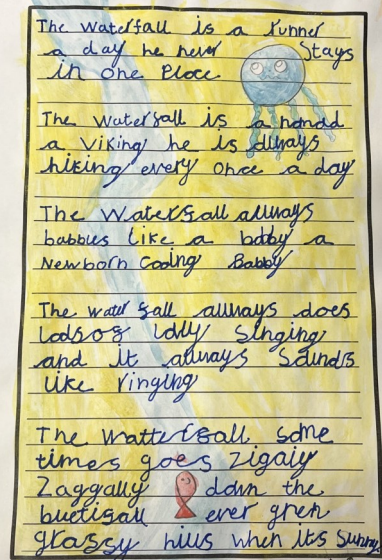 The waterfall is a runner
a day he never Stays
in one Place
The waterfall is a nomad
a Viking he is always
hiking every once a day
The Waterfall allways
babbles like a baby a
Newborn Cooing Babby
The water fall allways does
lods of lolly Singing
and it allways Sounds
like ringing
The watterfall some
times goes Zigaiy
Zaggally down the
buetifall ever gren
grassy hills when its Sunny